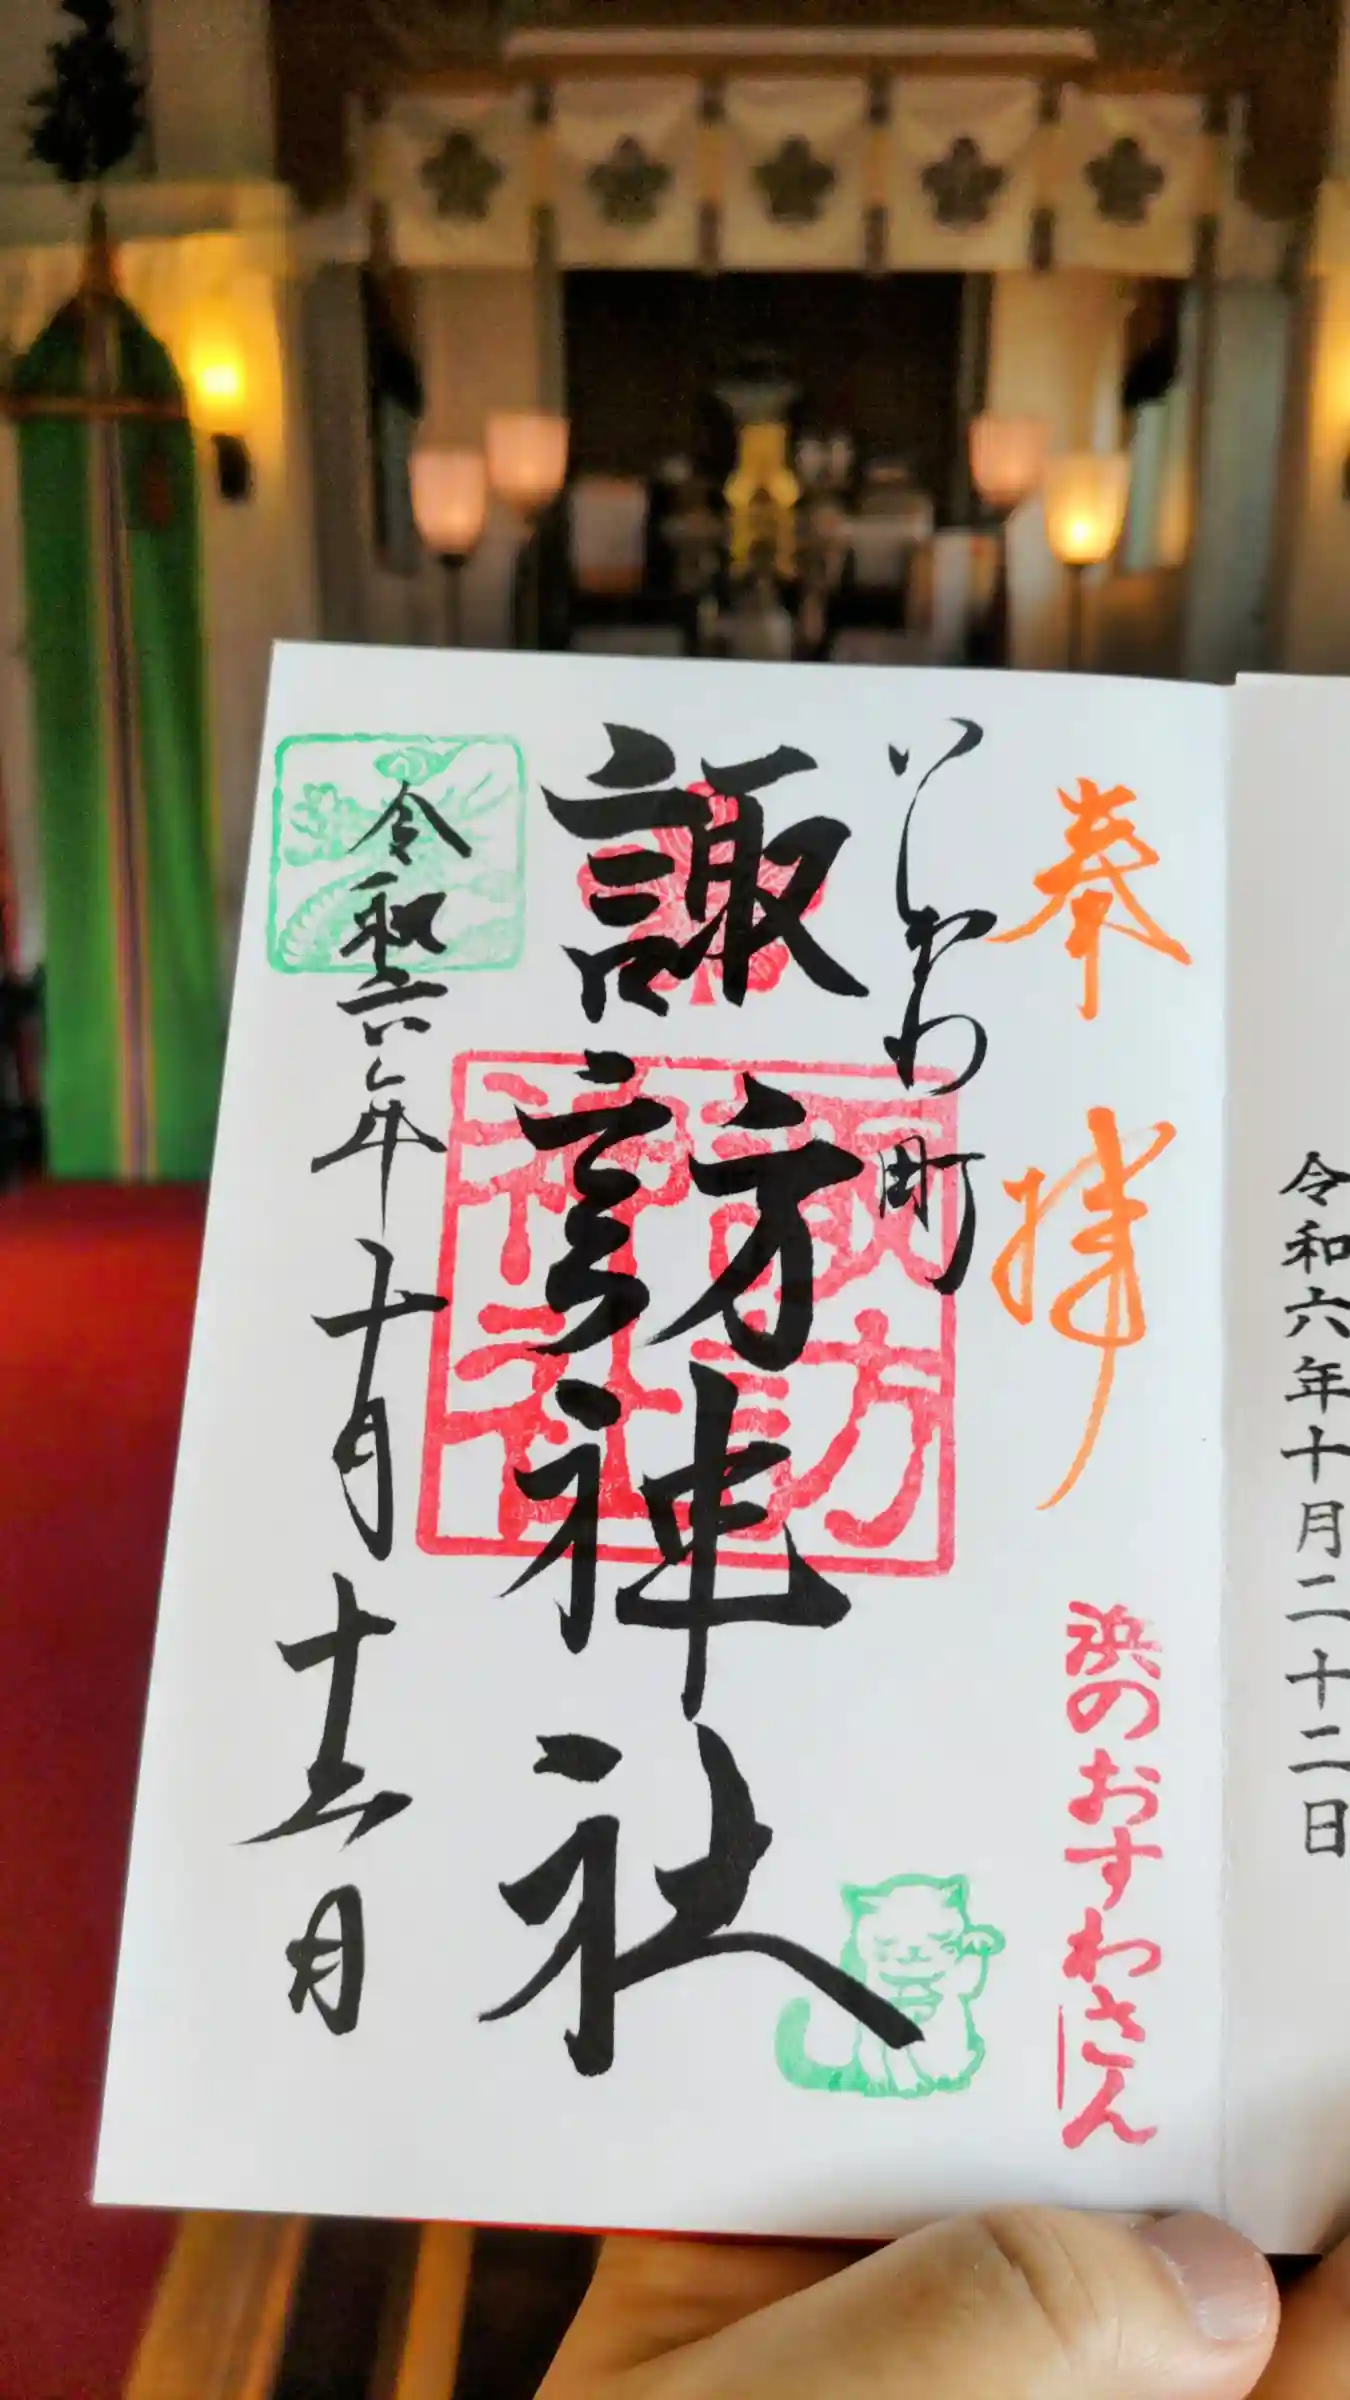 令和六年十月二十二日
奉拝
浜のおすわさん
いしかわ町
諏訪神社
諏訪
神社
令和六年十月